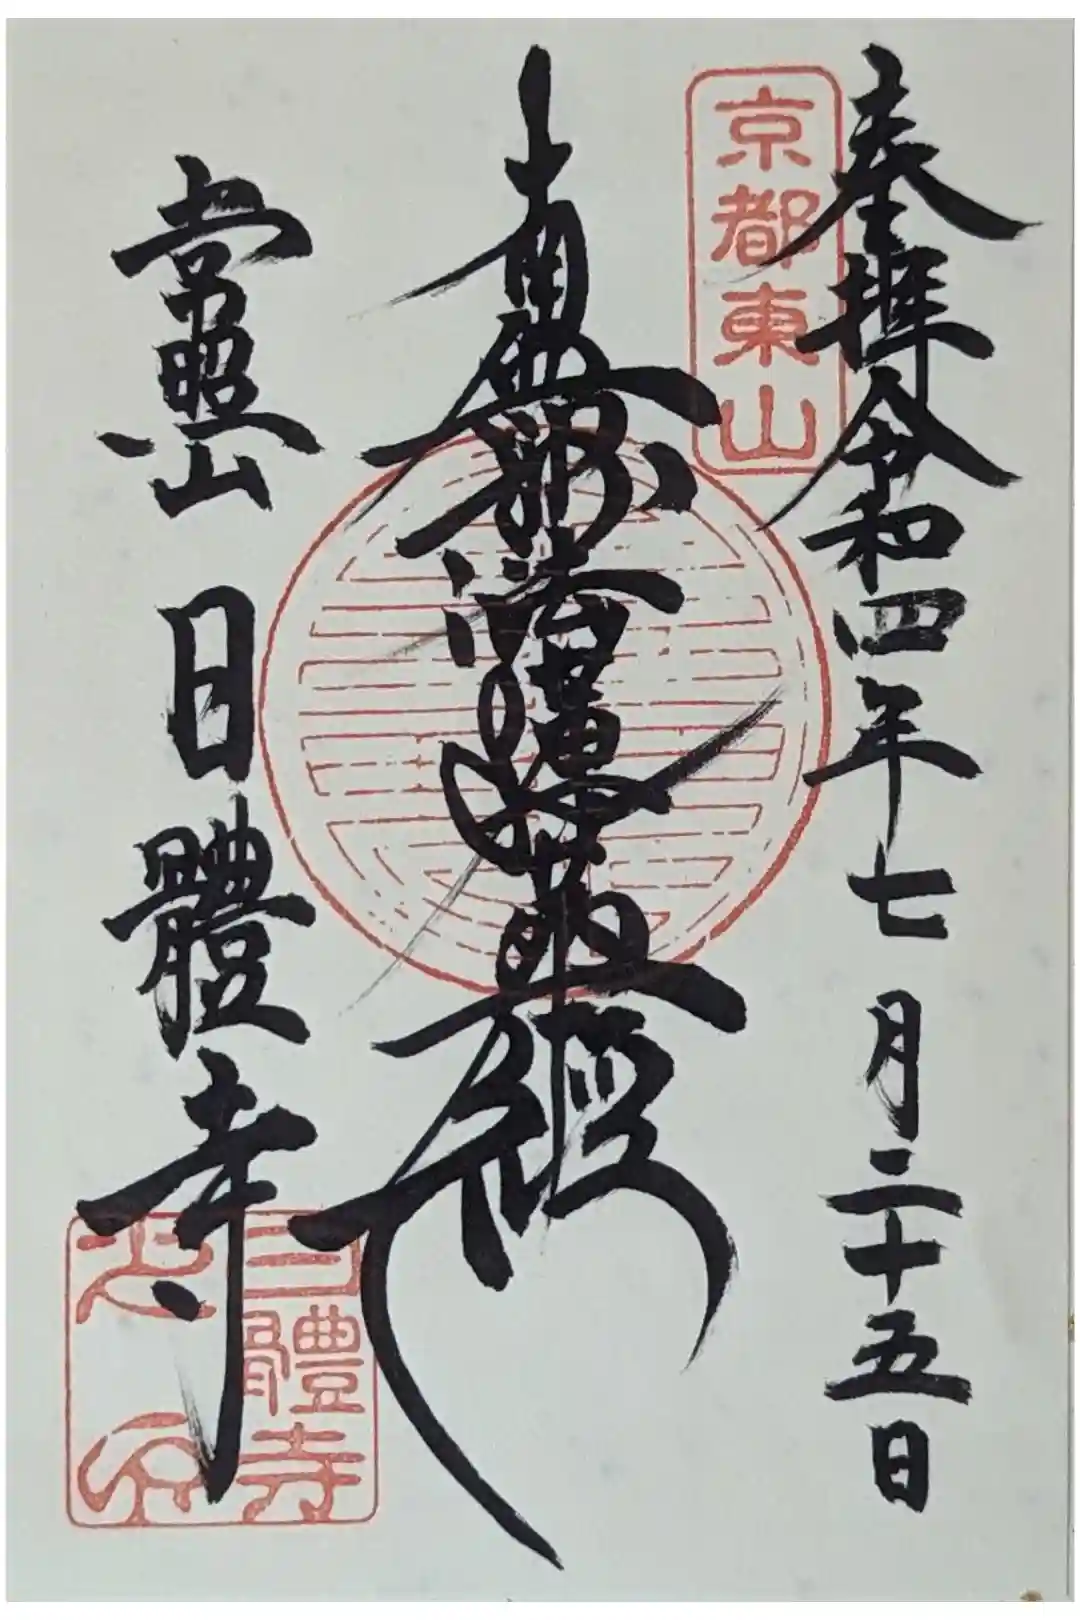 奉拝令和四年七月二十五日
京都東山
南無妙法蓮華経
常照山 日體寺
日體寺
之印